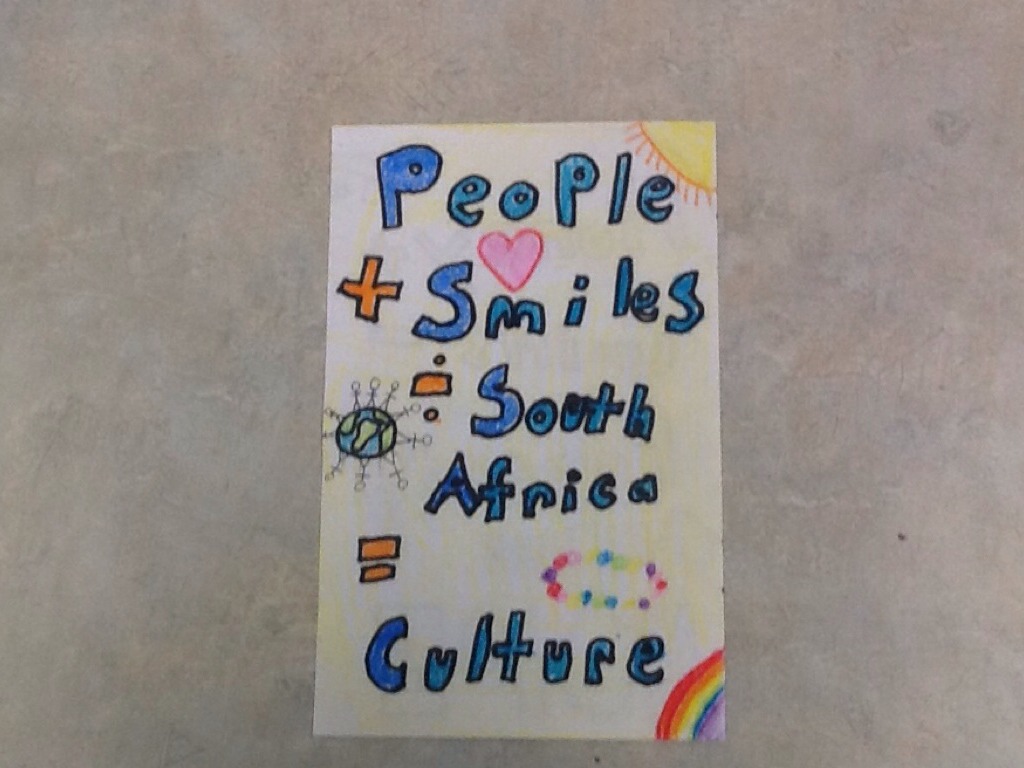 People
+ Smiles
÷ South
Africa
=
Culture